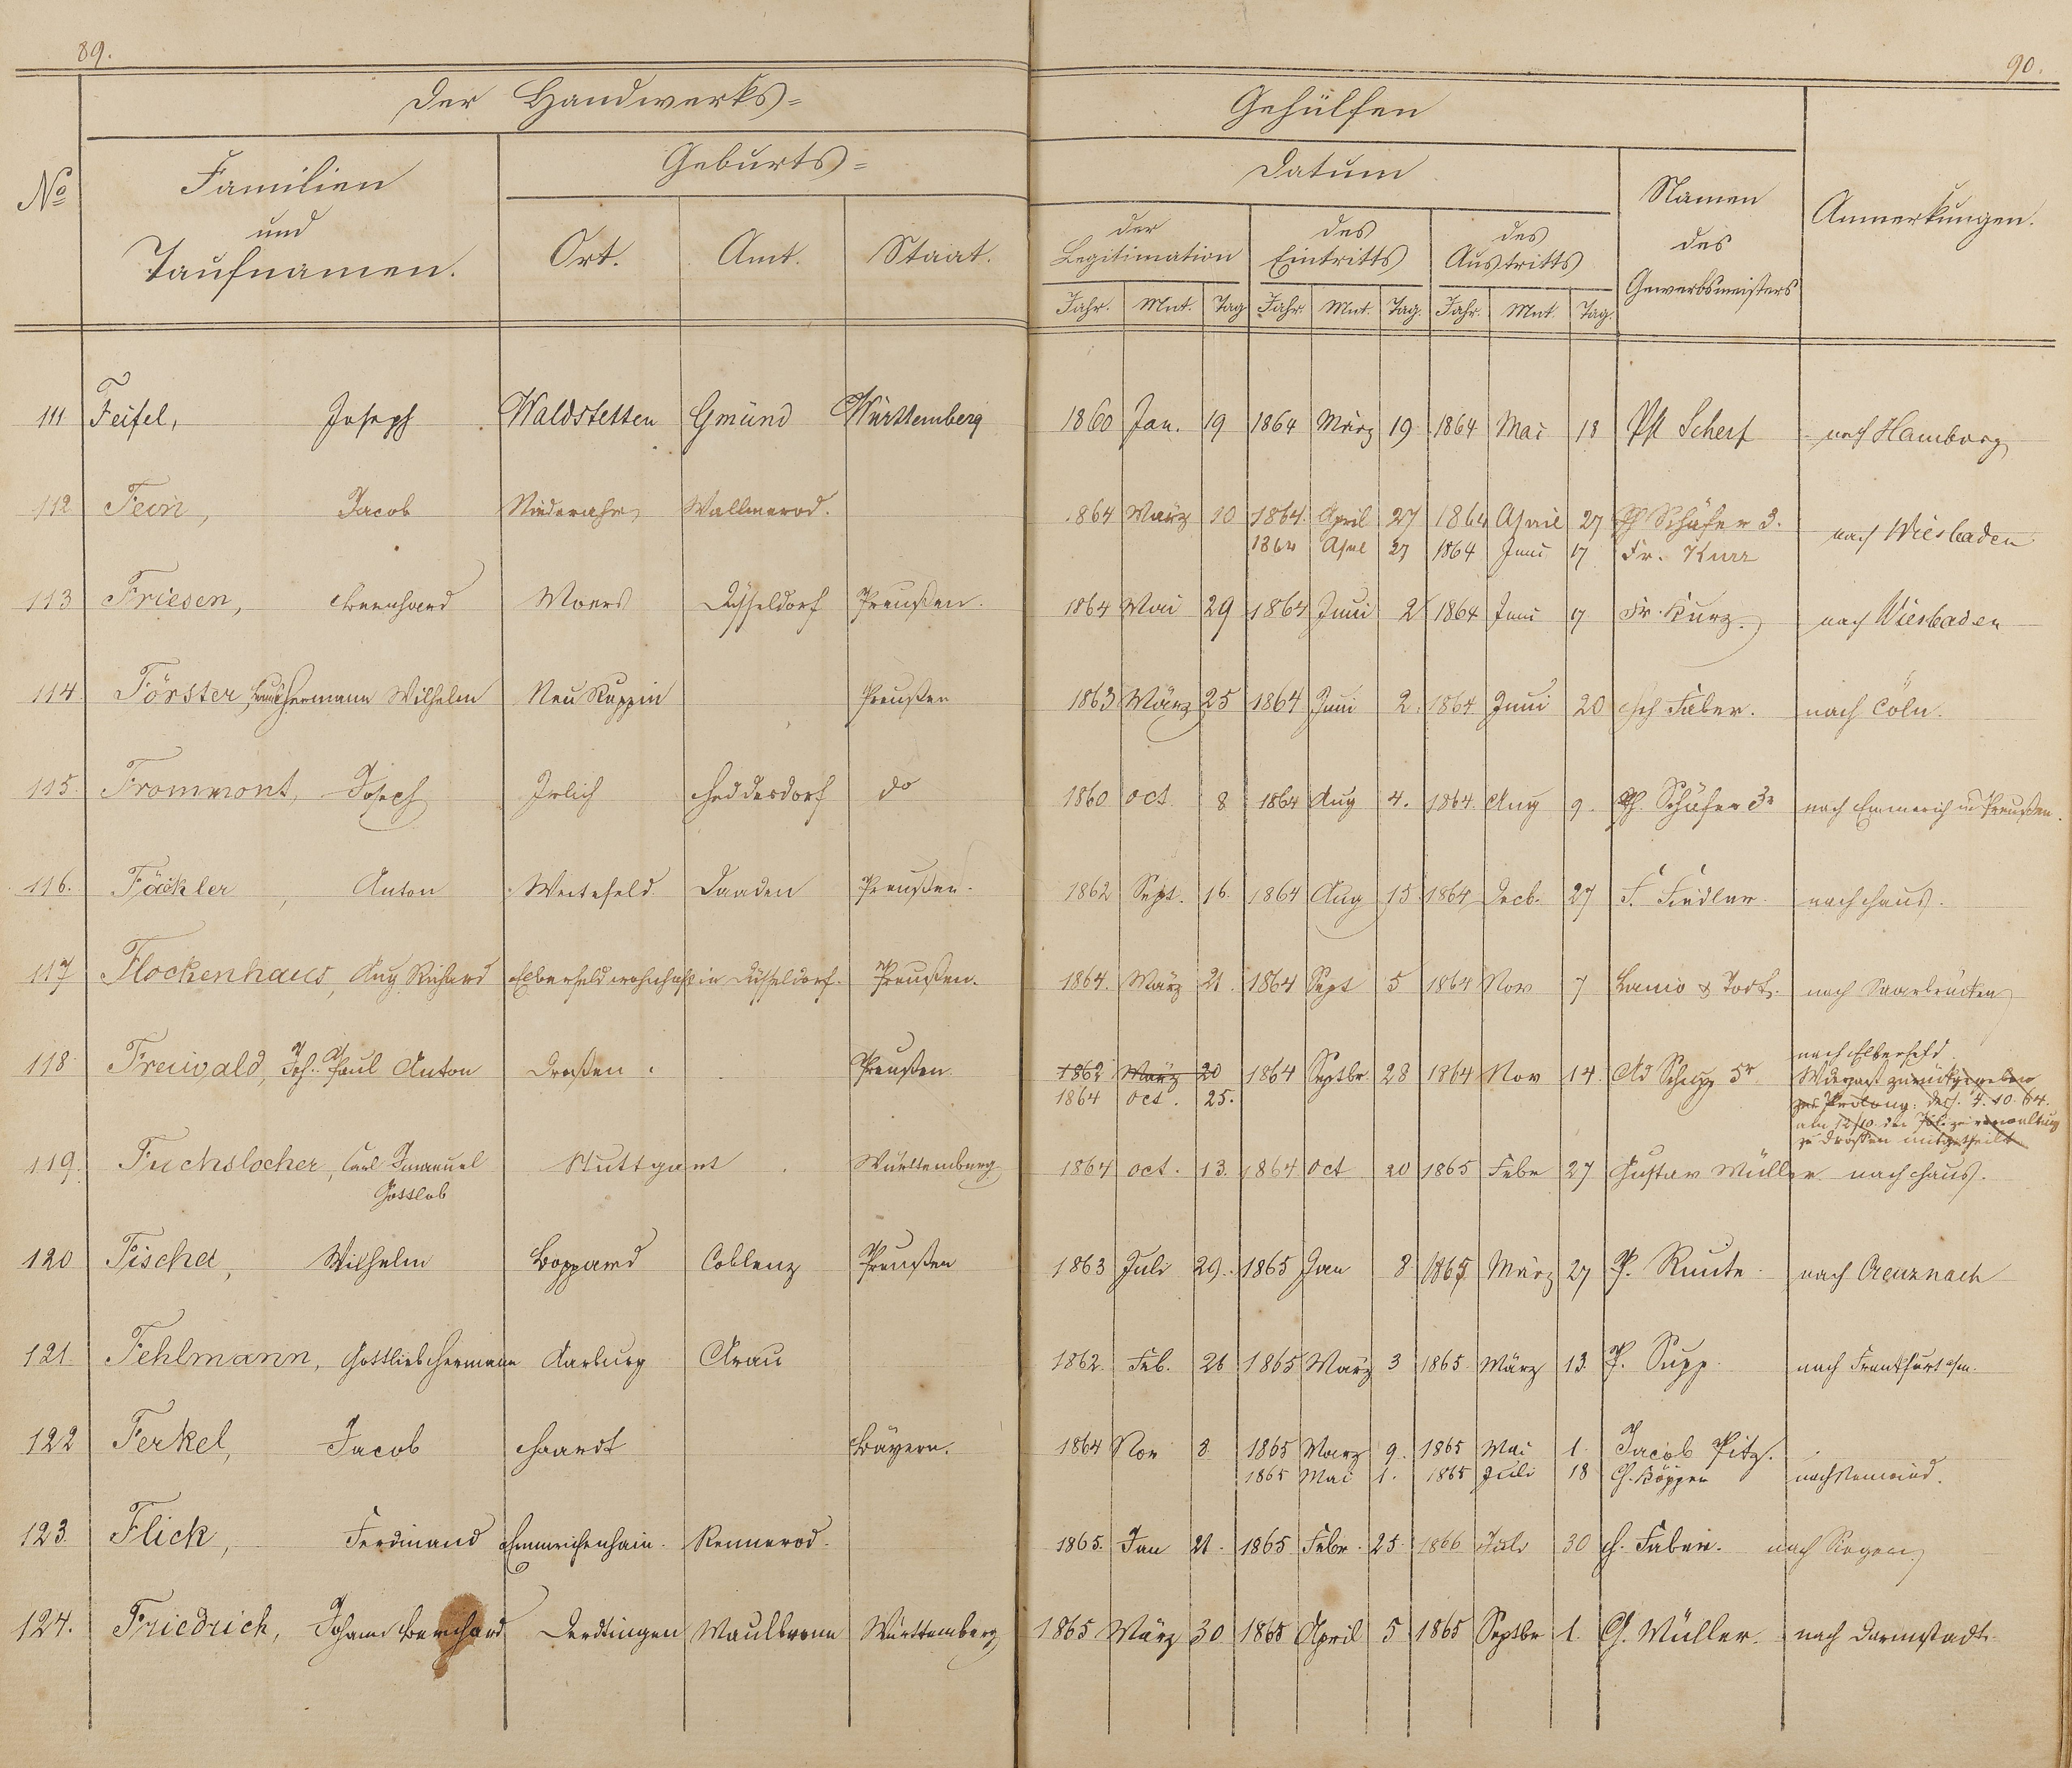 89.
90.
Der Handwerks=
Gehülfen
No
Familien
und
Taufnamen.
Geburts=
Ort.
Amt.
Staat.
Datum
der
Legitimation
des
Eintritts
des
Austritts
Jahr. Mnt. Tag Jahr. Mnt. Tag. Jahr. Mnt. Tag.
Namen
des
Gewerbsmeisters
Anmerkungen.
111 Feifel, Joseph Waldstetten Gmünd Württemberg 1860 Jan. 19 1864 März 19 1864 Mai 18 Scherf nach Hamburg
112 Fein, Jacob Niederahr Wallmerod. 1864 März 10 1864 April 27 1864 April 27 Ph Schäfer 3. nach Wiesbaden
1864 Apr 27 1864 Juni 17 Fr. Kurz
113 Friesen, Bernhard Moers Düsseldorf Preußen. 1864 Mai 29 1864 Juni 2 1864 Juni 17 Fr. Kurz. nach Wiesbaden
114. Förster, Hermann Wilhelm Neu Ruppin Preußen 1863 März 25 1864 Juni 2. 1864 Juni 20 Hch Faber. nach Cöln.
115. Frommont, Joseph Irlich Heddesdorf do 1860 Oct. 8 1864 Aug 4. 1864. Aug 9. Ph. Schäfer 3r nach Emmerich in Preußen.
116. Fäckler, Anton Weitefeld. Daaden Preußen. 1862 Sept. 16. 1864 Aug 15. 1864 Decb. 27 F. Fiedler. nach Haus.
117 Flockenhaus, Aug Richard Elberfeld wohnhaft in Düsseldorf. Preußen. 1864. März 21. 1864 Sept 5 1864 Nov 7 & nach Saarbrücken
118 Freiwald, Joh. Paul Anton Drossen. Preußen. 1862 März 20 1864 Septbr 28 1864 Nov 14. Ad Schupp 5r nach Elberfeld
1864 Oct. 25. zurückgegeben
zur Prolong: 4.10.64.
am 12/10. der Polizeiverwaltung
zu Drossen mitgetheilt
119. Fuchslocher, Carl Imanuel Stuttgart Württemberg 1864 Oct. 13. 1864 Oct 20 1865 Febr 27 Gustav Müller nach Haus.
Gottlob
120 Fischer, Wilhelm Boppard Coblenz Preußen 1863 Juli 29. 1865 Jan 8 1865 März 27 P. Ruute nach Creuznach
121. Fehlmann, Gottlieb Hermann Aarburg Arau 1862. Feb. 26 1865 März 3 1865 März 13. P. Supp. nach Frankfurt a/m.
122 Ferkel, Jacob Haardt Bayern. 1864 Nov 3. 1865 März 9. 1865 Mai 1. Jacob Pitz.
1865 Mai 1. 1865 Juli 18 Ch. Höpper nach Neuwied.
123. Flick, Ferdinand Emmerichenhain. Rennerod. 1865. Jan 21. 1865 Febr. 25. 1866 Juli 30 H. Faber. nach Siegen.
124. Friedrich, Johann Bernhard Derdtingen Maulbronn Württemberg 1865 März 30 1865 April 5 1865 Septbr 1. Ch. Müller. nach Darmstadt.